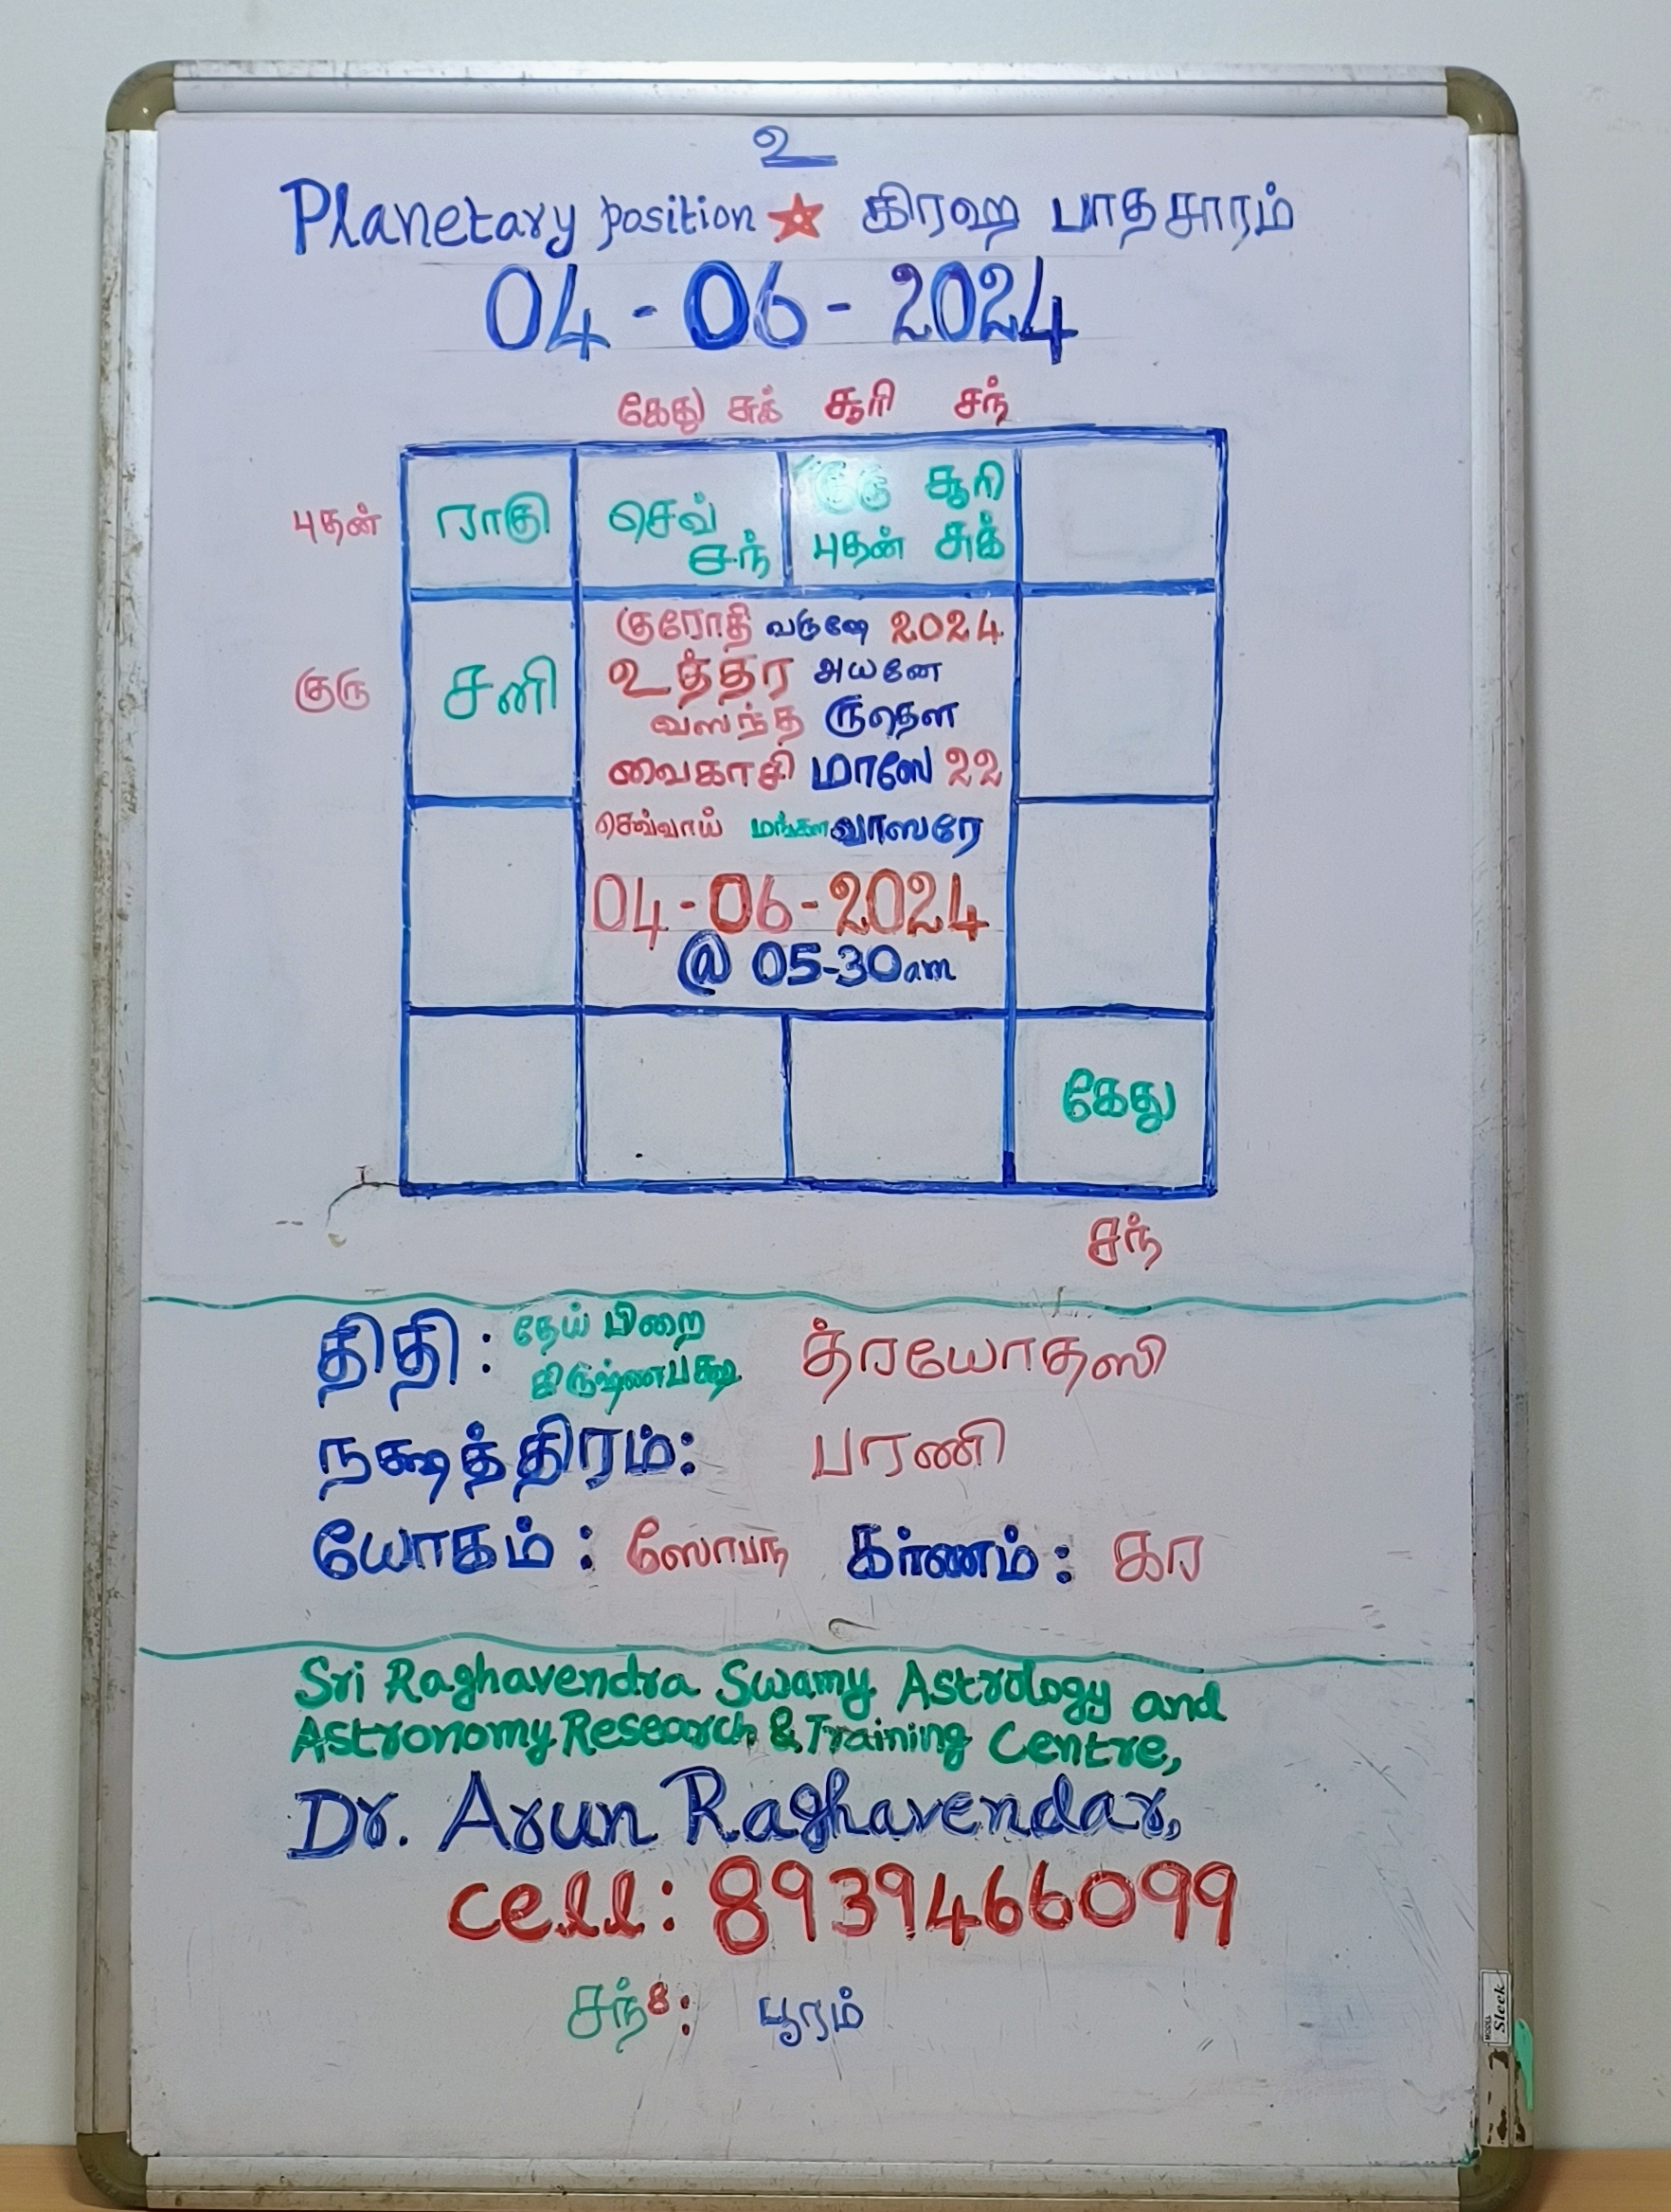 உ
Planetary position கிரஹ பாதசாரம்
04-06-2024
கேது சுக் சூரி சந்
புதன் ராகு செவ் சந் குரு சூரி
புதன் சுக்
குரு சனி
குரோதி வருஷே 2024
உத்தர அயனே
வஸந்த ருதௌ
வைகாசி மாஸே 22
செவ்வாய் மங்கள வாஸரே
04-06-2024
@ 05-30am
கேது
சந்
திதி: தேய் பிறை த்ரயோதஸி
கிருஷ்ணபக்ஷ
நக்ஷத்திரம்: பரணி
யோகம்: ஸோபந கர்ணம்: கர
Sri Raghavendra Swamy Astrology and
Astronomy Research & Training Centre,
Dr. Arun Raghavendar,
cell: 8939466099
சந்8: பூரம்
MODEL Sleek